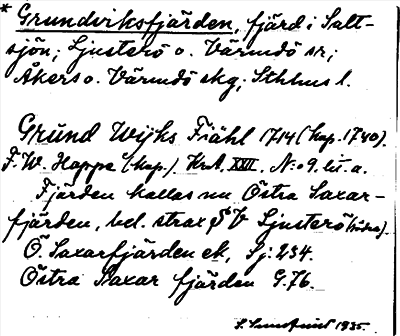 * Grundviksfjärden, fjärd i Salt-
sjön; Ljusterö o. Värmdö sr;
Åkers o. Värmdö skg; Sthlms l.
Gründ Wijks Fiähl 1714 (kop. 1740).
F. W. Happe (kop.). Kr.A. XXII. N:o 9. lit. a.
Fjärden kallas nu Östra Saxar-
fjärden, bel. strax SV Ljusterö
Ö. Saxarfjärden ek, Sj: 234.
Östra Saxar fjärden G. 76.
1935.